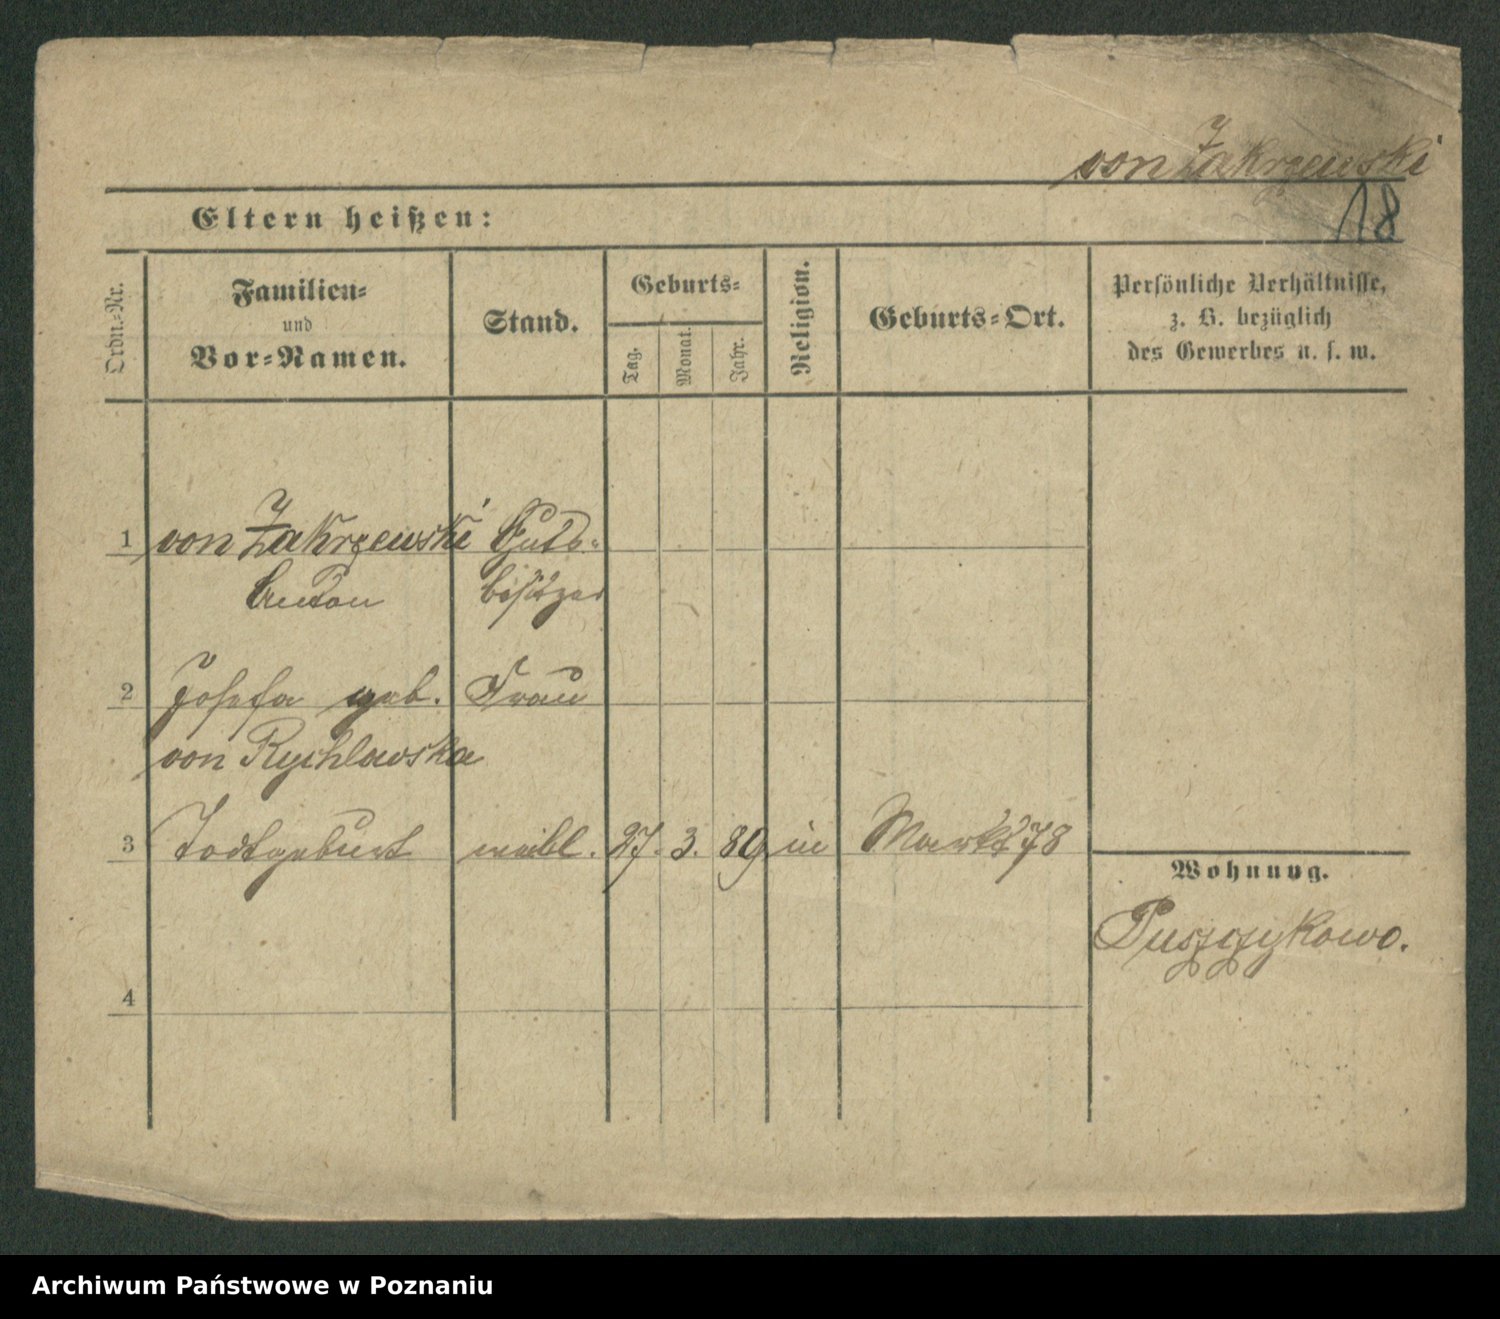 von Zakrzewski
18
Eltern heißen:
Ordn.-Nr.
Familien-
und
Vor-Namen.
Stand.
Geburts-
Tag.
Monat.
Jahr.
Religion.
Geburts-Ort.
Persönliche Verhältnisse,
z. B. bezüglich
des Gewerbes u. s. w.
1 von Zakrzewski Guts-
Anton besitzer
2 Josefa geb. Frau
von Rychlowska
3 Todtgeburt weibl. 27. 3. 89 in Markt 78
Wohnung.
Puszczykowo.
4
Archiwum Państwowe w Poznaniu